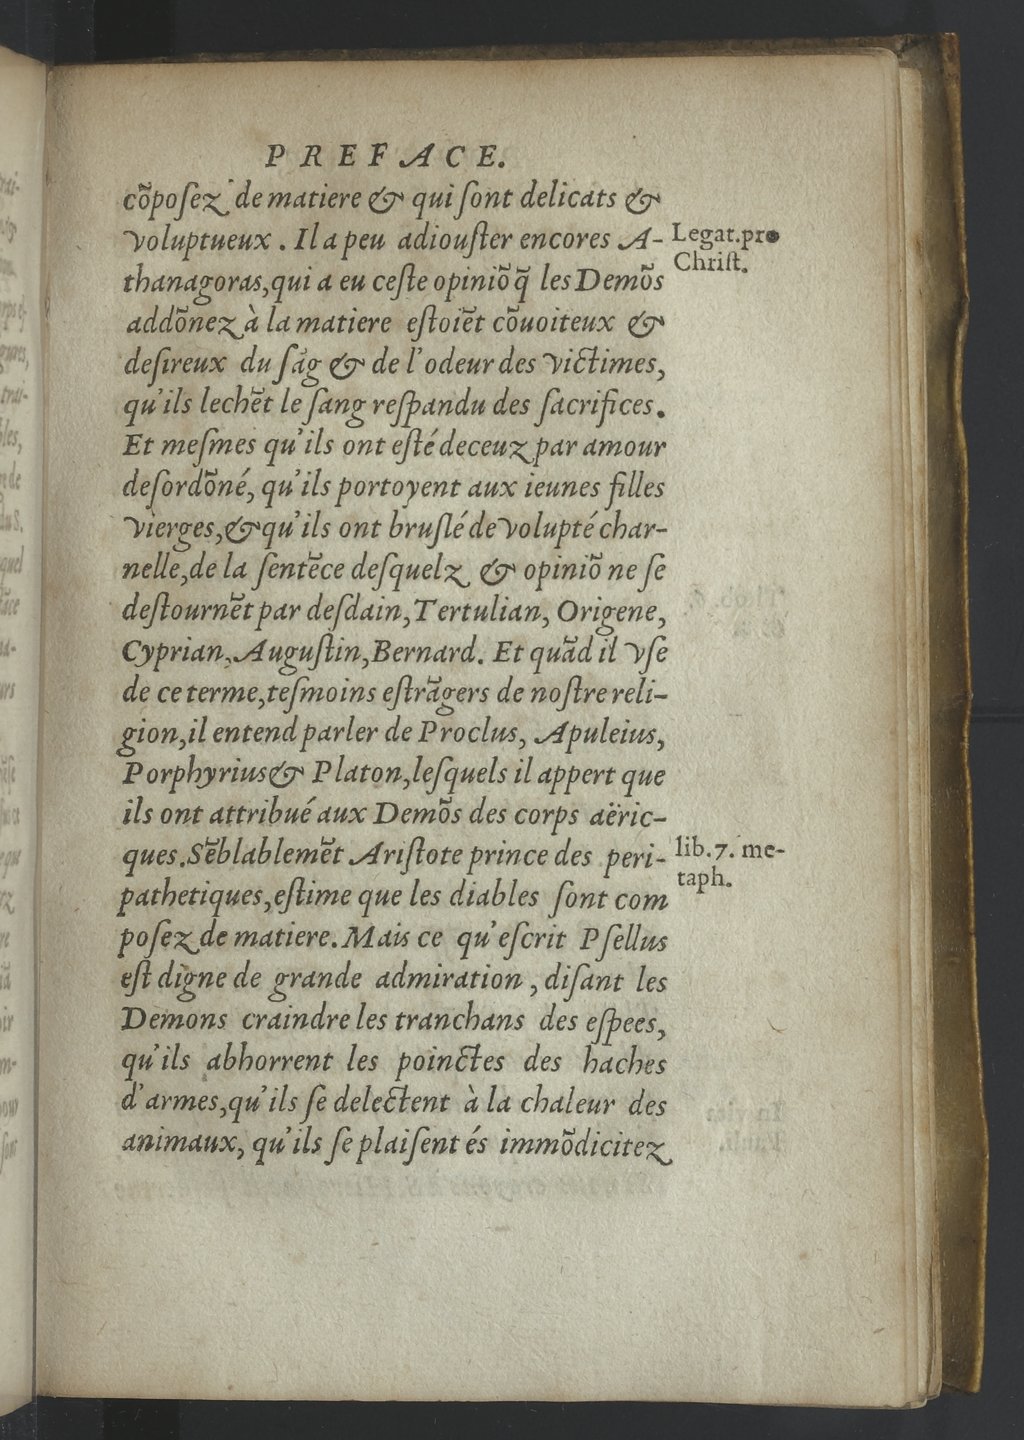 PREFACE.
cõposez de matiere & qui sont delicats &
voluptueux. Il a peu adiouster encores A-
Legat. pro
Christ.
thanagoras, qui a eu ceste opiniõ q̃ les Demõs
addõnez à la matiere estoiẽt cõuoiteux &
desireux du sãg & de l'odeur des victimes,
qu'ils lechẽt le sang respandu des sacrifices.
Et mesmes qu'ils ont esté deceuz par amour
desordõné, qu'ils portoyent aux ieunes filles
vierges, & qu'ils ont bruslé de volupté char-
nelle, de la sentẽce desquelz & opiniõ ne se
destournẽt par desdain, Tertulian, Origene,
Cyprian, Augustin, Bernard. Et quãd il vse
de ce terme, tesmoins estrãgers de nostre reli-
gion, il entend parler de Proclus, Apuleius,
Porphyrius & Platon, lesquels il appert que
ils ont attribué aux Demõs des corps aëric-
ques. Sẽblablemẽt Aristote prince des peri-
lib. 7. me-
taph.
pathetiques, estime que les diables sont com
posez de matiere. Mais ce qu'escrit Psellus
est digne de grande admiration, disant les
Demons craindre les tranchans des espees,
qu'ils abhorrent les poinctes des haches
d'armes, qu'ils se delectent à la chaleur des
animaux, qu'ils se plaisent és immõdicitez